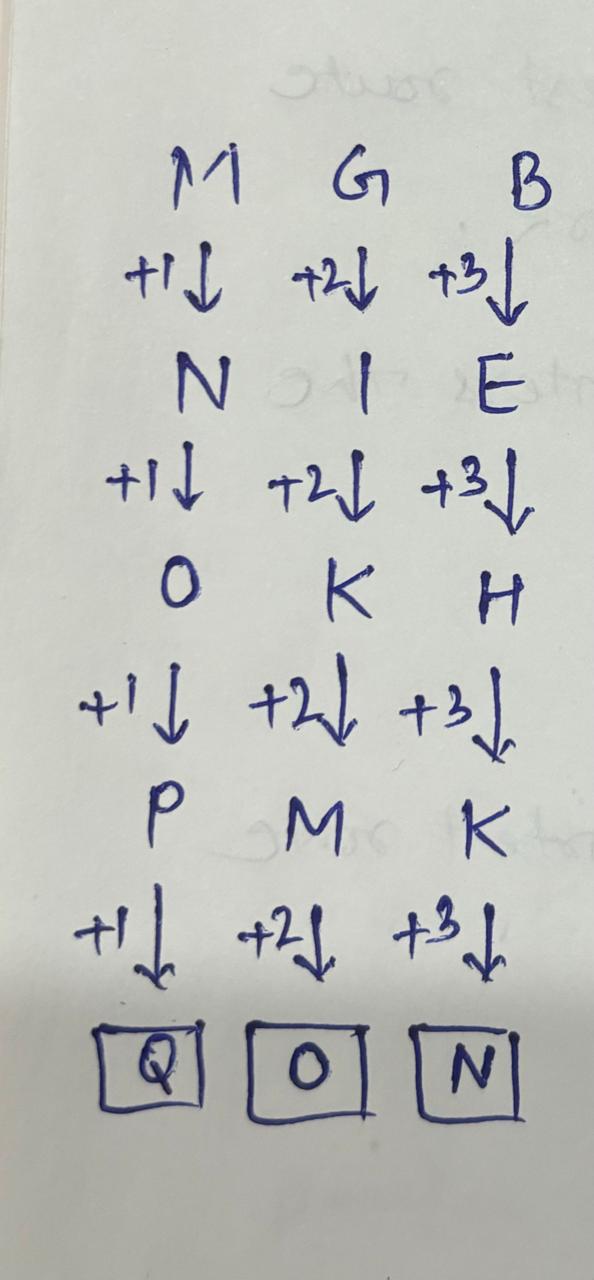 M G B
+1↓ +2↓ +3↓
N I E
+1↓ +2↓ +3↓
O K H
+1↓ +2↓ +3↓
P M K
+1↓ +2↓ +3↓
Q O N